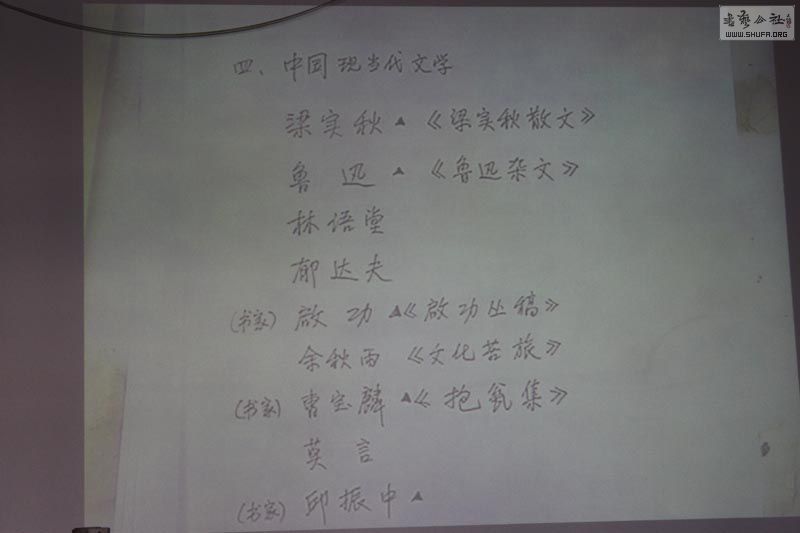 書藝公社
WWW.SHUFA.ORG
四、中国现当代文学
梁实秋▲《梁实秋散文》
鲁迅▲《鲁迅杂文》
林语堂
郁达夫
(书家) 啟功▲《啟功丛稿》
余秋雨《文化苦旅》
(书家) 曹宝麟▲《抱瓮集》
莫言
(书家) 邱振中▲